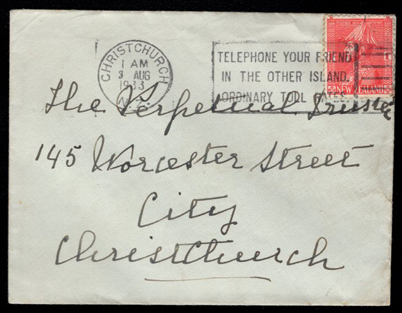 CHRISTCHURCH
1 AM
3 AUG
1933
N.Z.
TELEPHONE YOUR FRIEND
IN THE OTHER ISLAND.
ORDINARY TOLL RATES
NEW ZEALAND
The Perpetual Trustee
145 Worcester Street
City
Christchurch